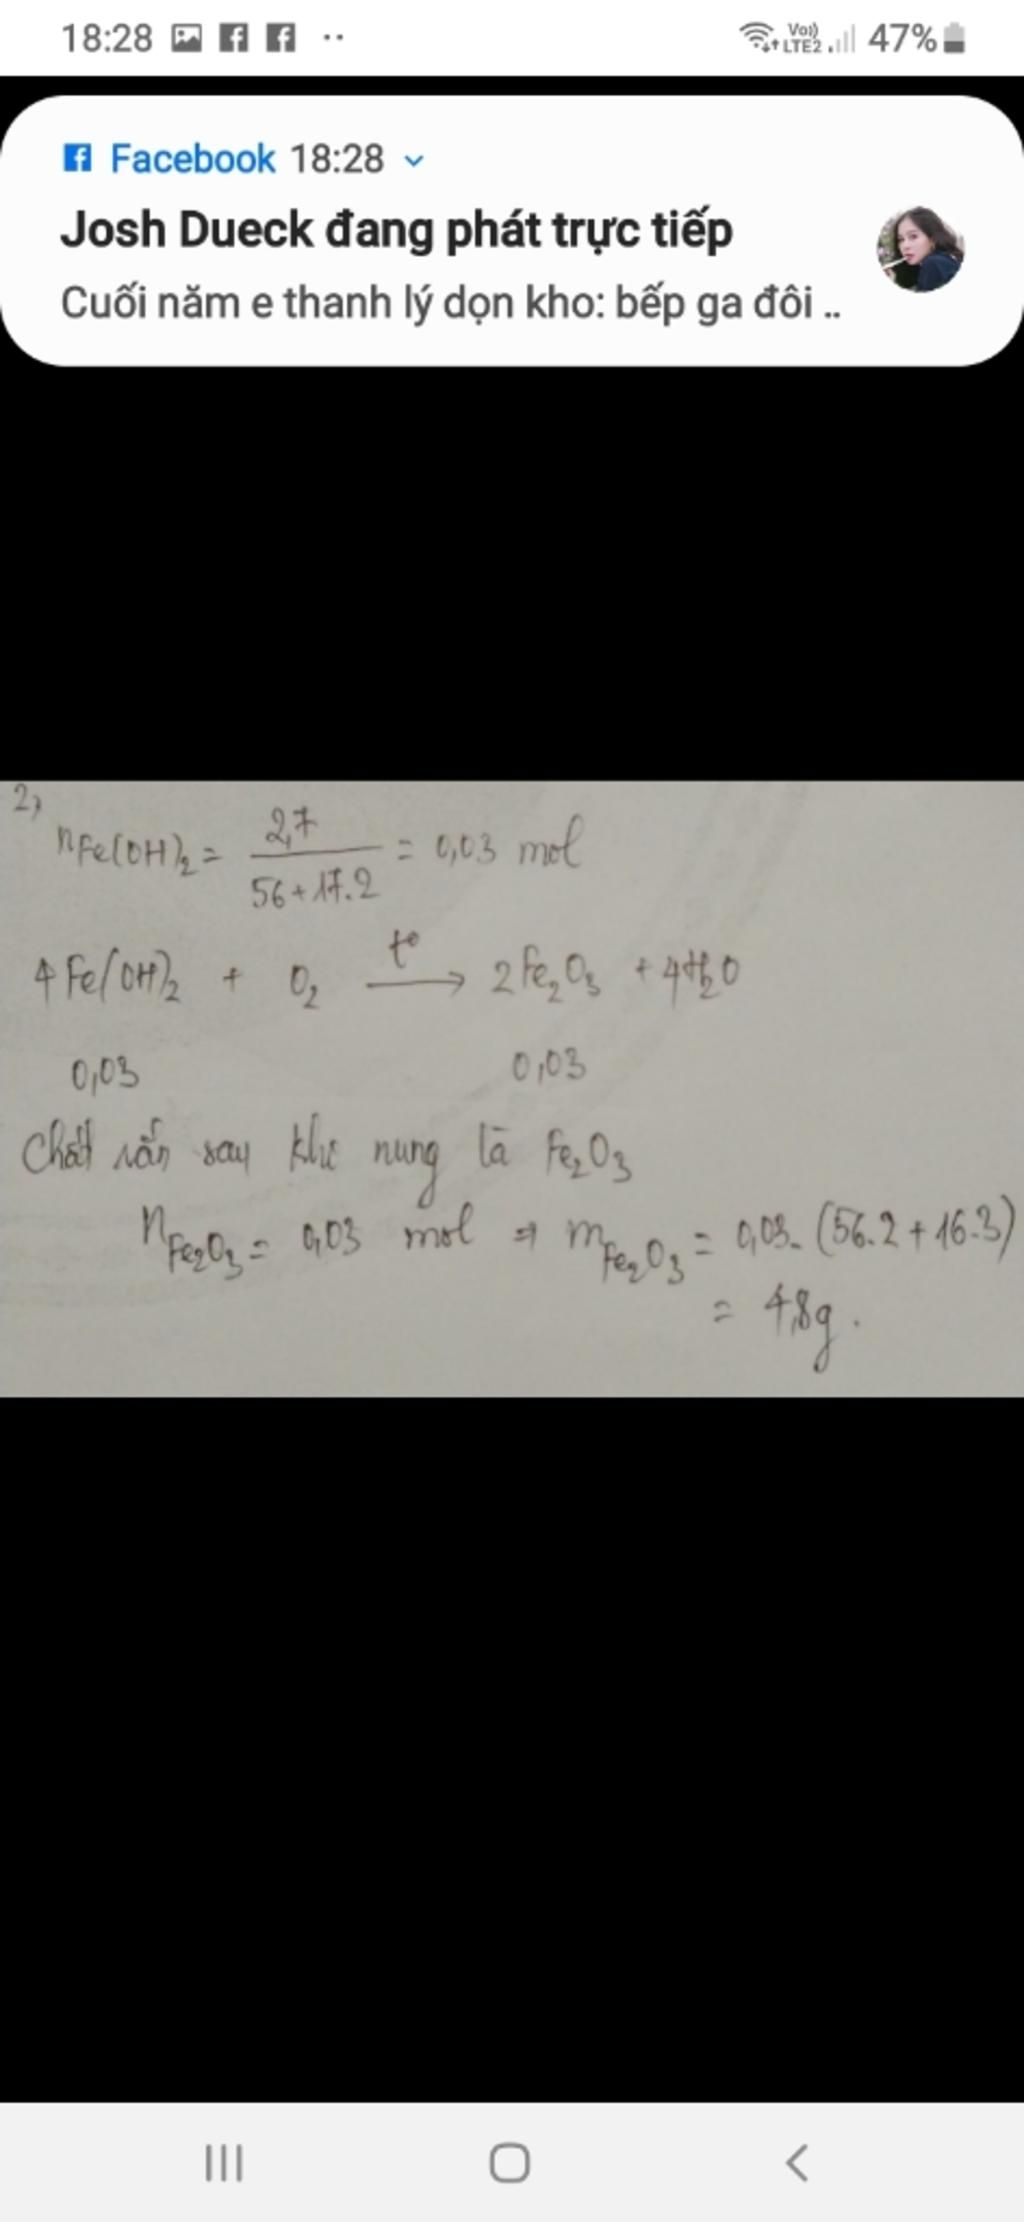 18:28
Vo)) LTE2 47%
Facebook 18:28
Josh Dueck đang phát trực tiếp
Cuối năm e thanh lý dọn kho: bếp ga đôi ..
2)
nFe(OH)₂ = 2,7 / 56+17.2 = 0,03 mol
4Fe(OH)₂ + O₂ t° → 2Fe₂O₃ + 4H₂O
0,03 0,03
Chất rắn say khi nung là Fe₂O₃
nFe₂O₃ = 0,03 mol ⇒ mFe₂O₃ = 0,03. (56.2+16.3)
= 4,8g.